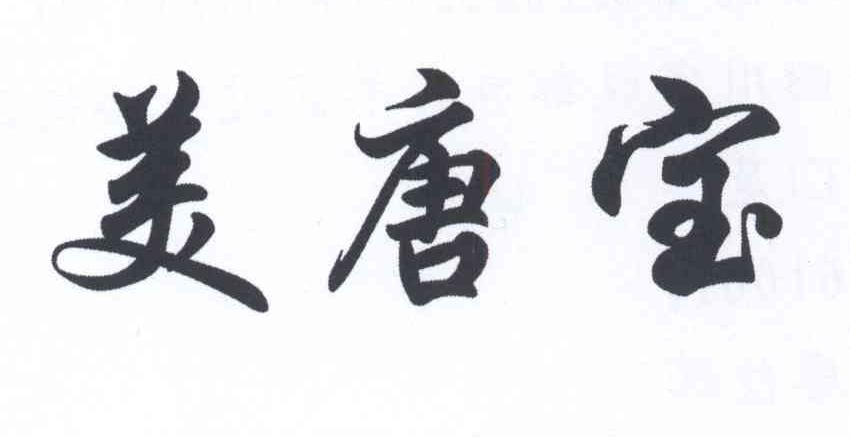 美唐宝